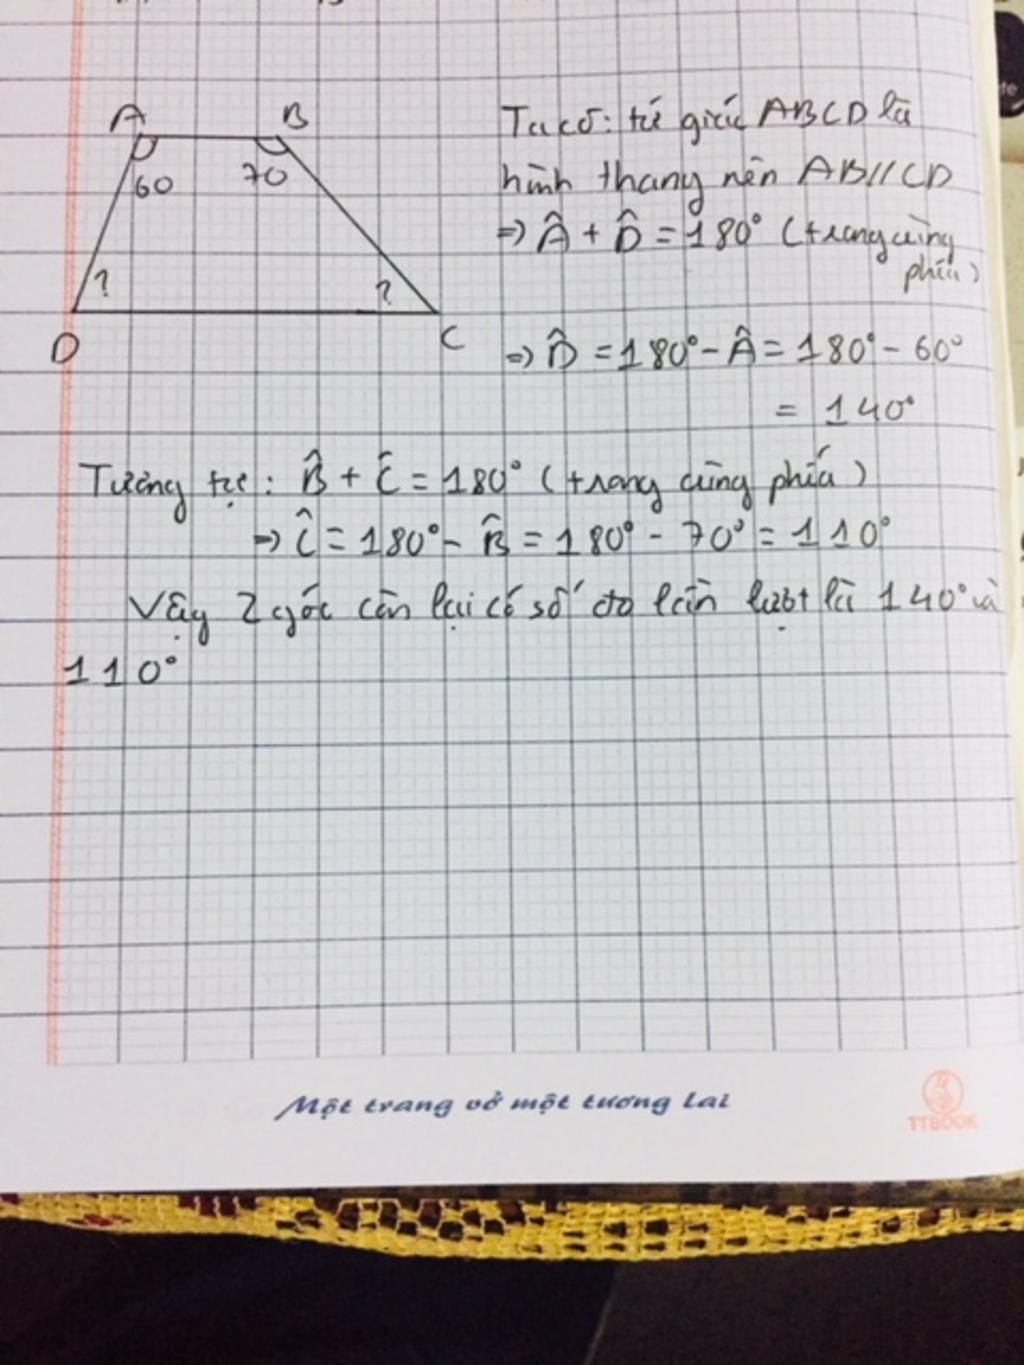 A B
60 70
? ?
D C
Ta có: tứ giác ABCD là
hình thang nên AB//CD
=> Â + D̂ = 180° (trong cùng
phía)
=> D̂ = 180° - Â = 180° - 60°
= 140°
Tương tự: B̂ + Ĉ = 180° (trong cùng phía)
=> Ĉ = 180° - B̂ = 180° - 70° = 110°
Vậy 2 góc còn lại có số đo lần lượt là 140° và
110°
Một trang vở một tương lai
TTBOOK